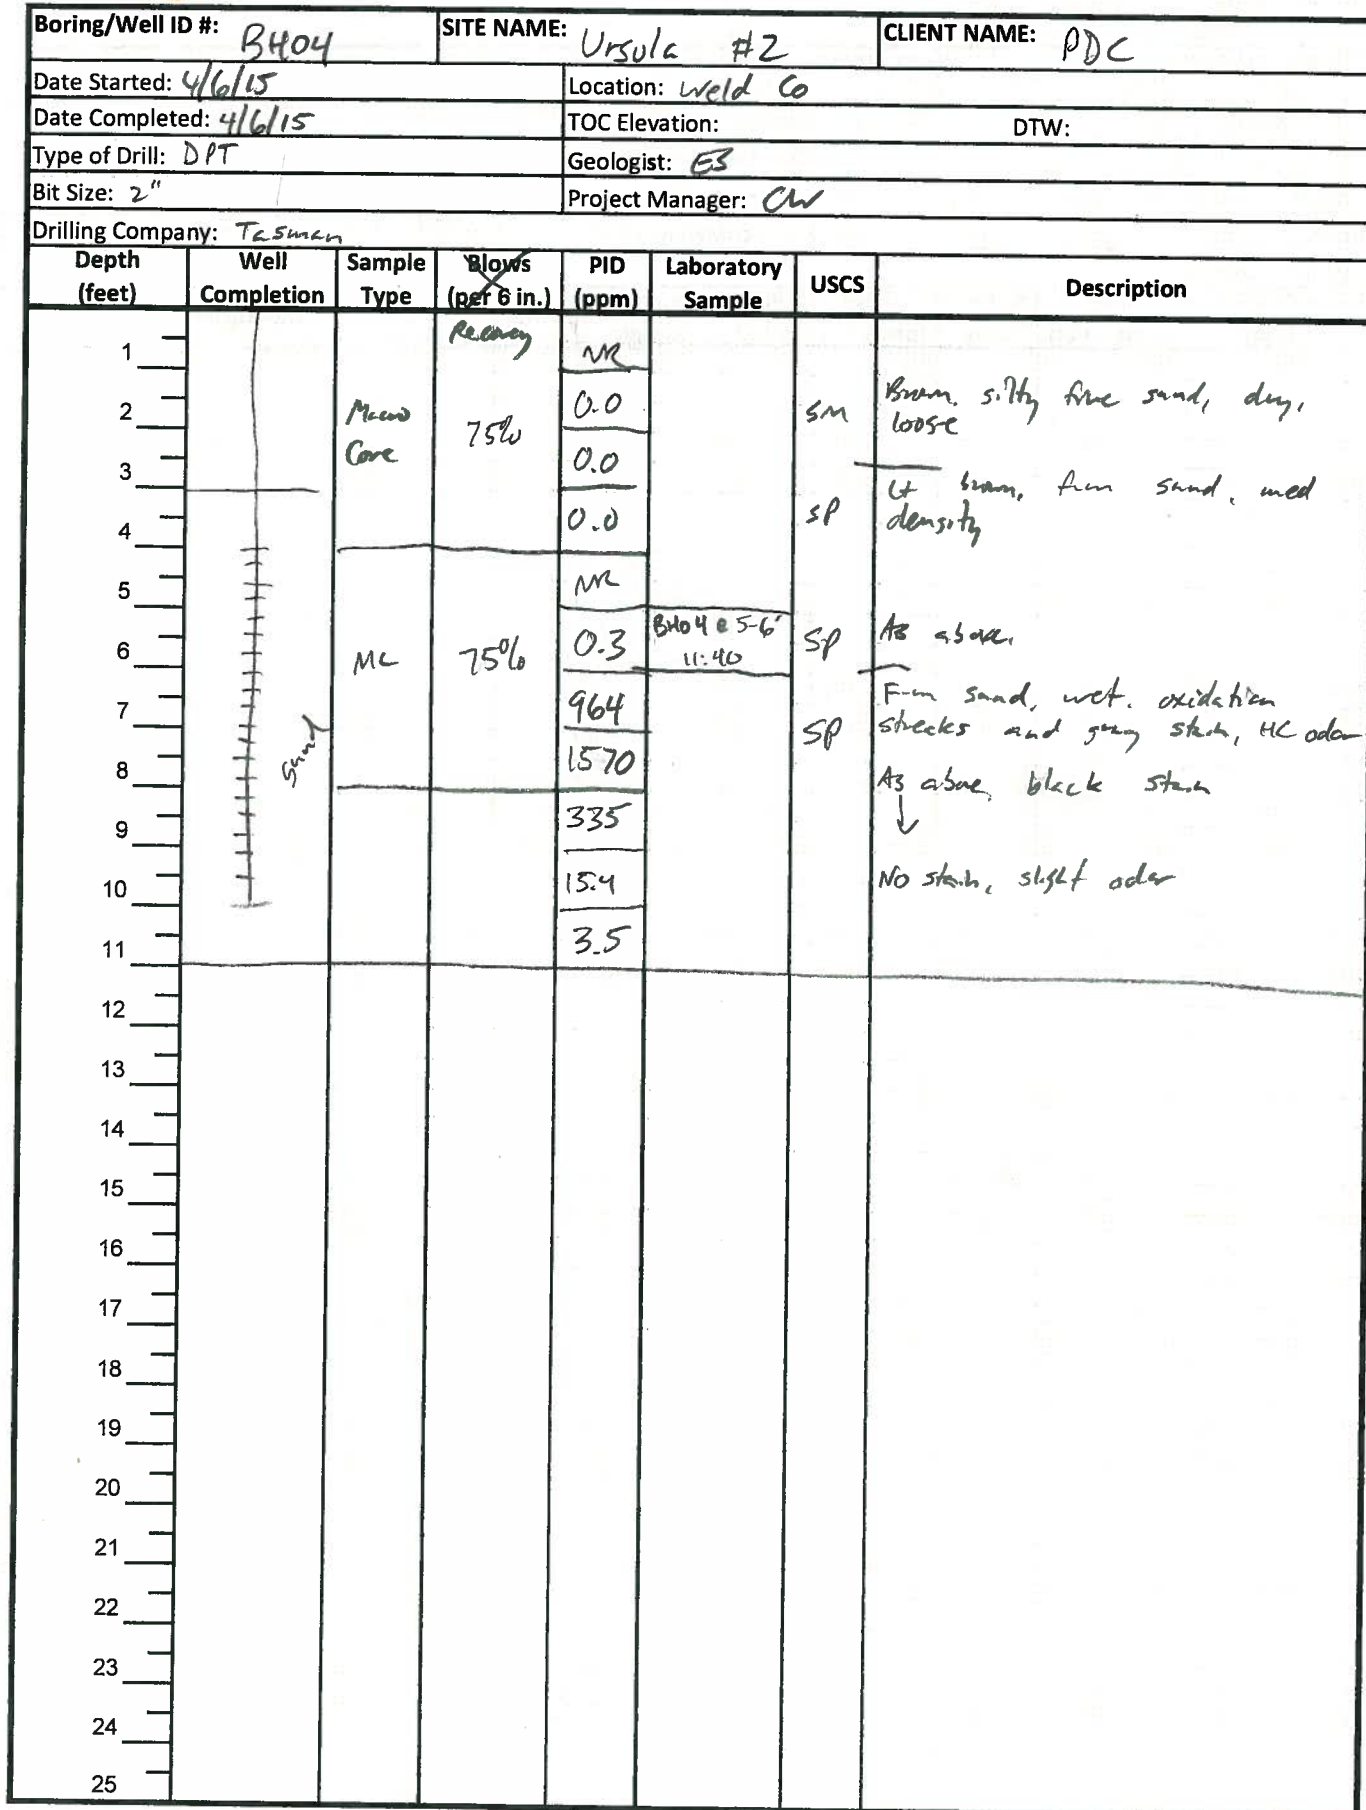 Boring/Well ID #: BH04 SITE NAME: Ursula #2 CLIENT NAME: PDC
Date Started: 4/6/15 Location: Weld Co
Date Completed: 4/6/15 TOC Elevation: DTW:
Type of Drill: DPT Geologist: ES
Bit Size: 2" Project Manager: CW
Drilling Company: Tasman
Depth (feet) Well Completion Sample Type Blows (per 6 in.) PID (ppm) Laboratory Sample USCS Description
Recovery
1 NR
2 Macro Core 75% 0.0 SM Brown, silty fine sand, dry,
loose
3 0.0
Lt brown, f-m sand, med
4 0.0 SP density
5 NR
6 MC 75% 0.3 BH04 @ 5-6' 11:40 SP As above.
F-m sand, wet. oxidation
7 Sand 964 SP streaks and gray stain, HC odor
8 1570 As above, black stain
9 335
10 15.4 No stain, slight odor
11 3.5
12
13
14
15
16
17
18
19
20
21
22
23
24
25